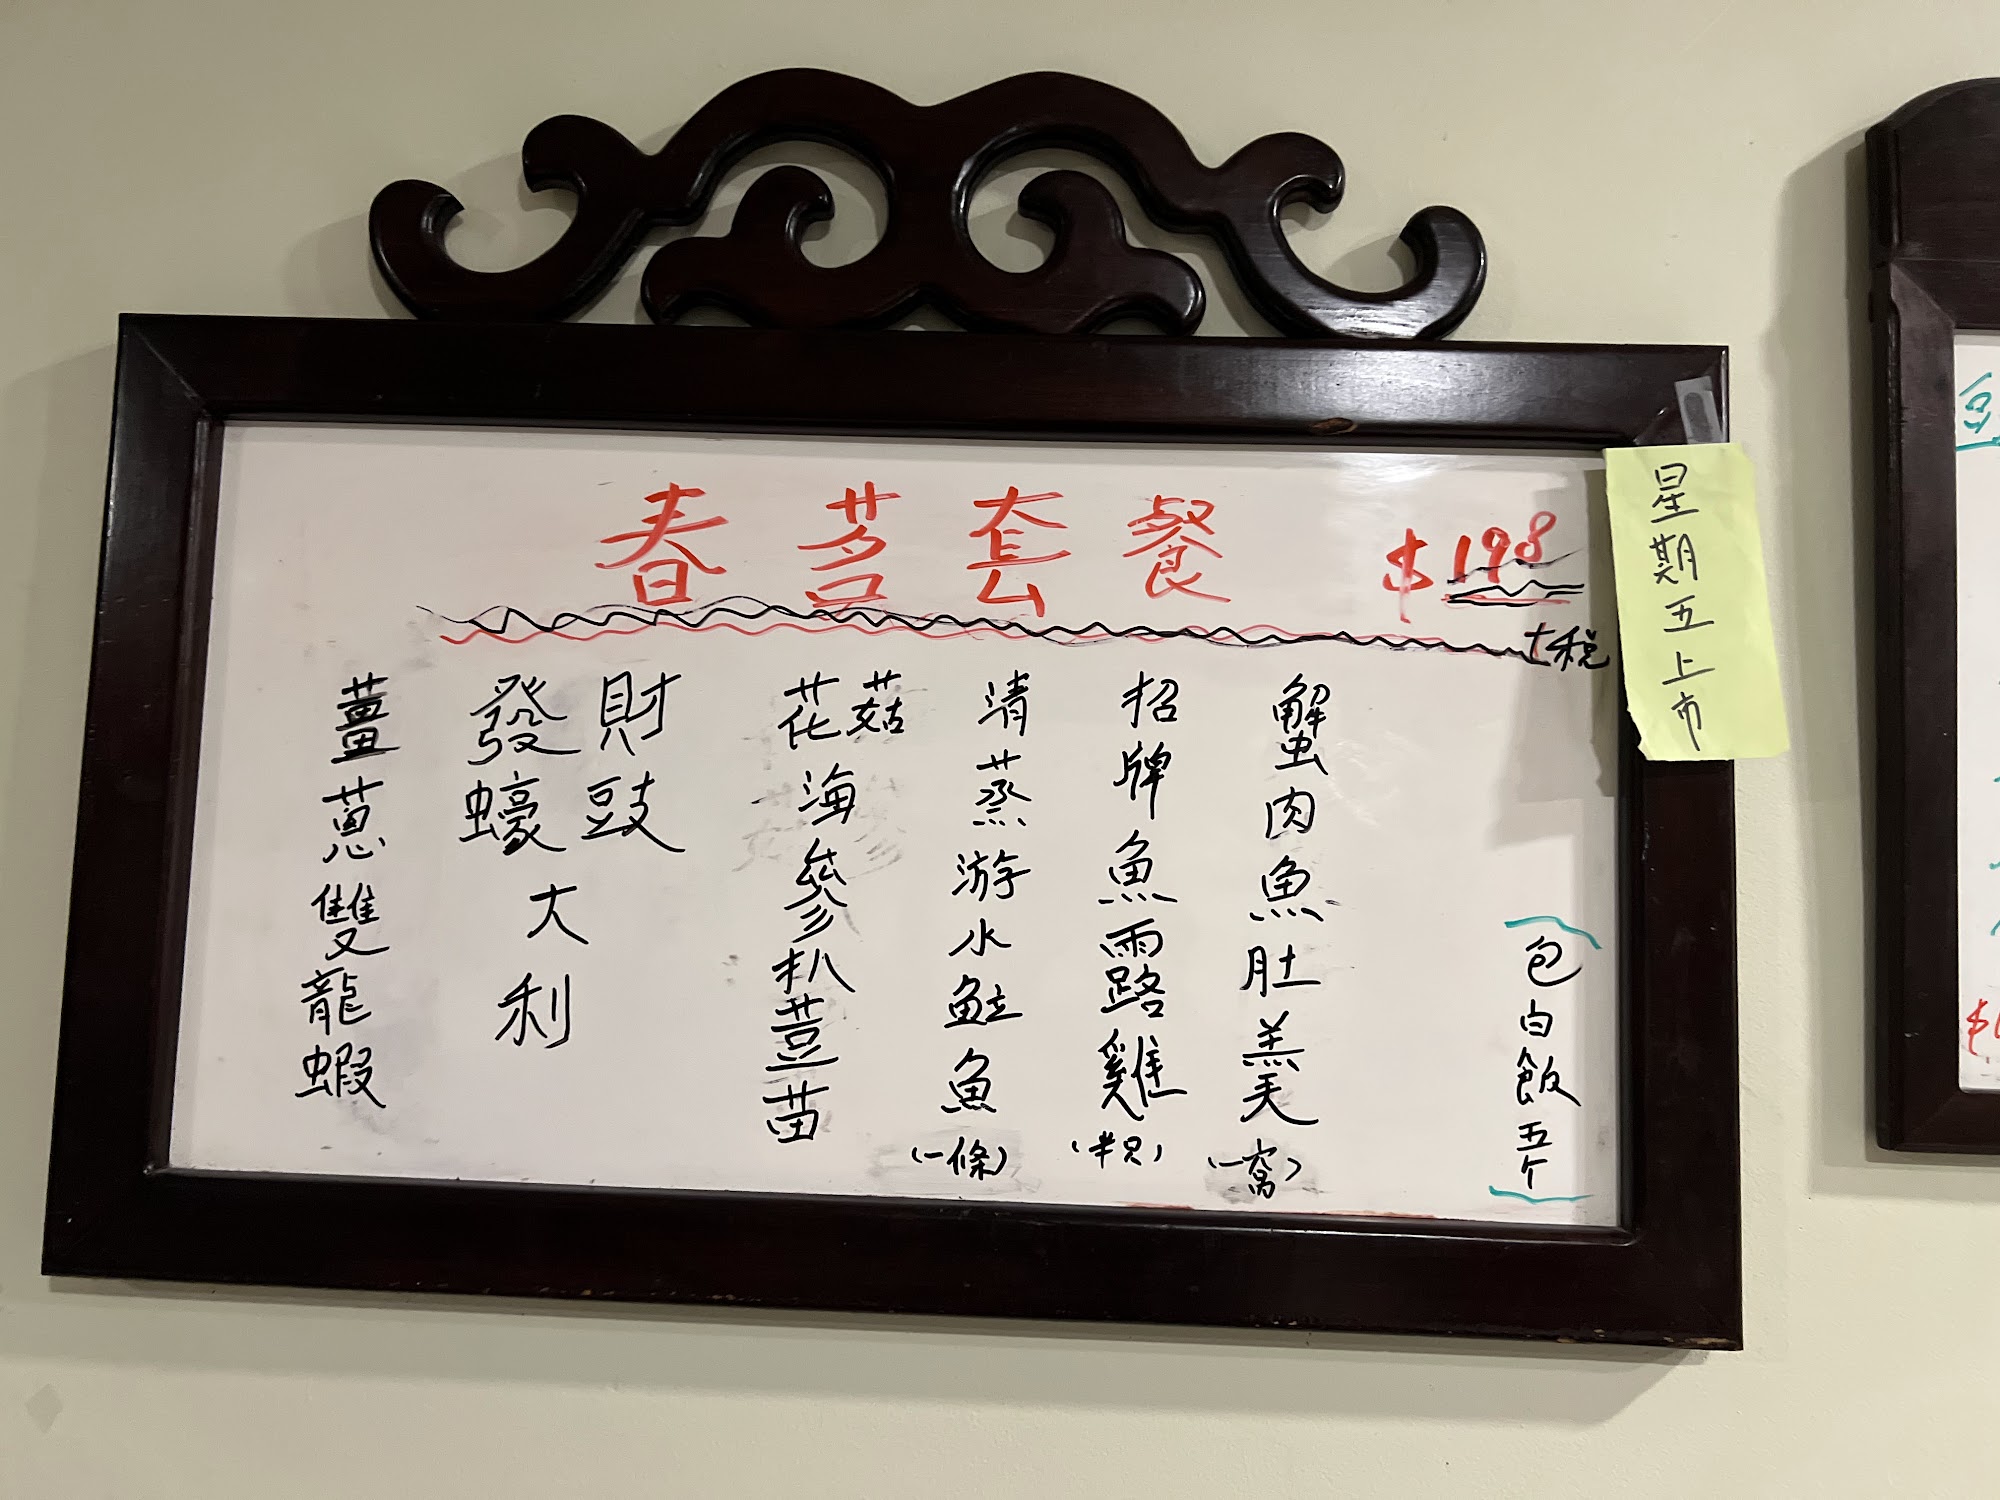 春茗套餐 $198
+税
薑蔥雙龍蝦
發財蠔豉大利
花菇海參扒荳苗
清蒸游水魚（一條）
招牌魚露雞（半只）
蟹肉魚肚羹（一窩）
包白飯五个
星期五上市